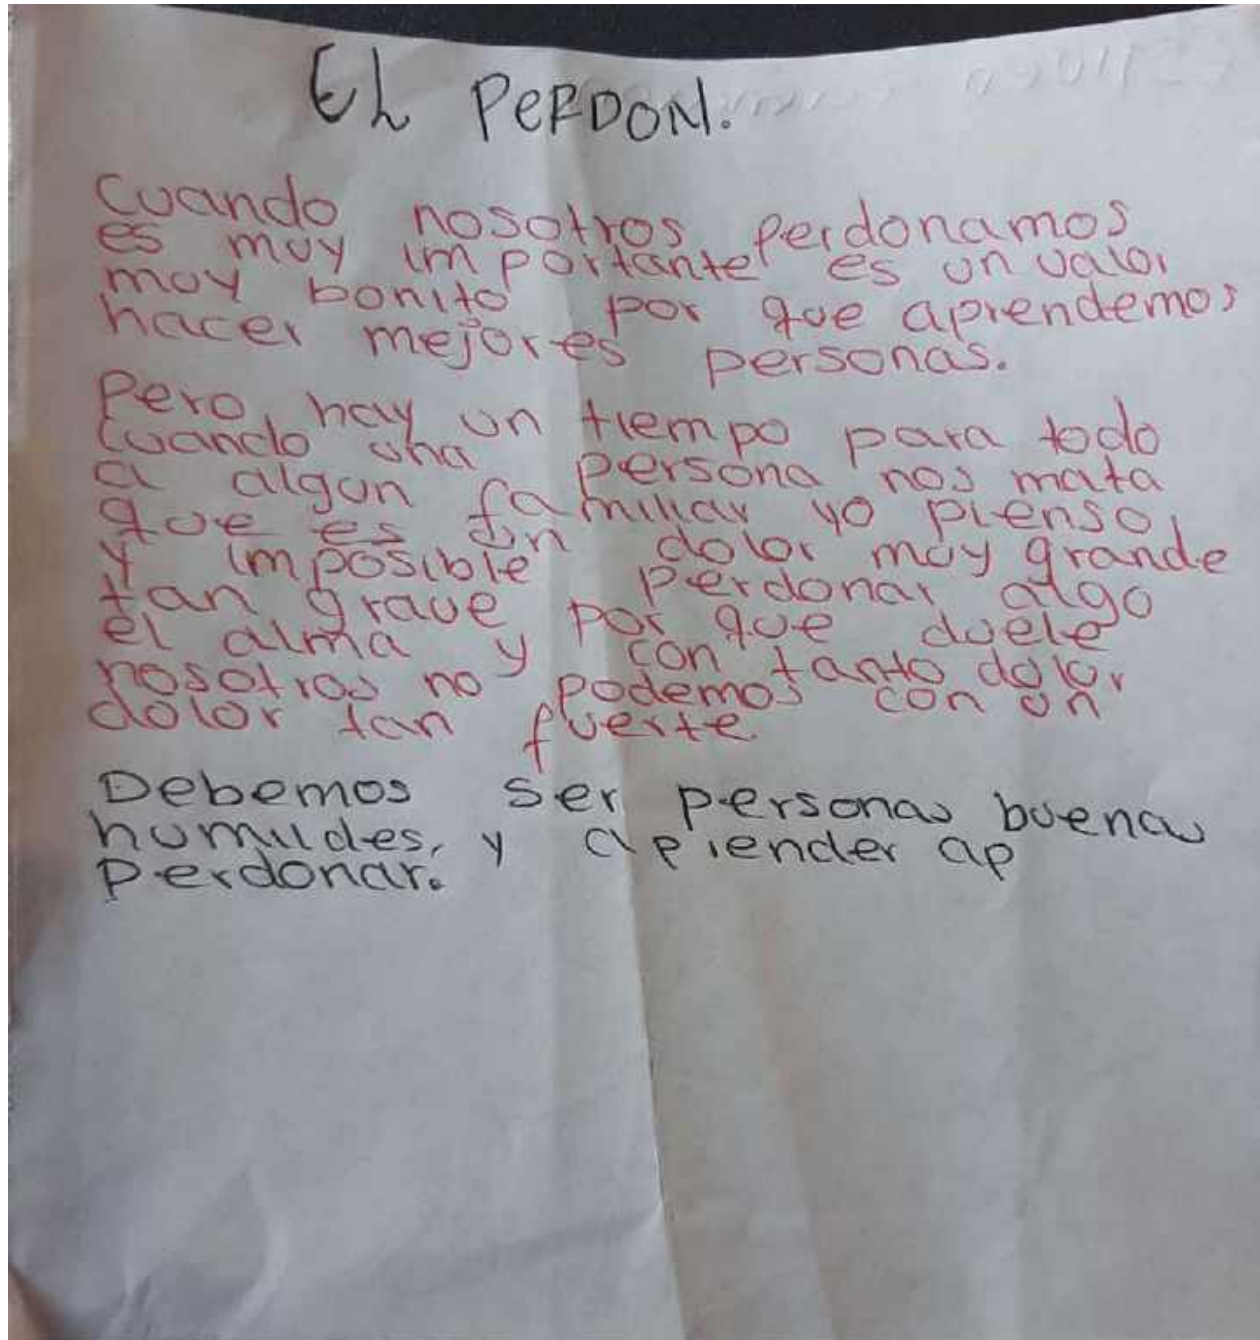 EL PERDON.
Cuando nosotros perdonamos
es muy importante es un valor
muy bonito por que aprendemos
hacer mejores personas.
Pero hay un tiempo para todo
cuando una persona nos mata
a algun familiar yo pienso
que es un dolor muy grande
y imposible perdonar algo
tan grave por que duele
el alma y con tanto dolor
nosotros no podemos con un
dolor tan fuerte.
Debemos ser personas buenas
humildes, y aprender ap
perdonar.